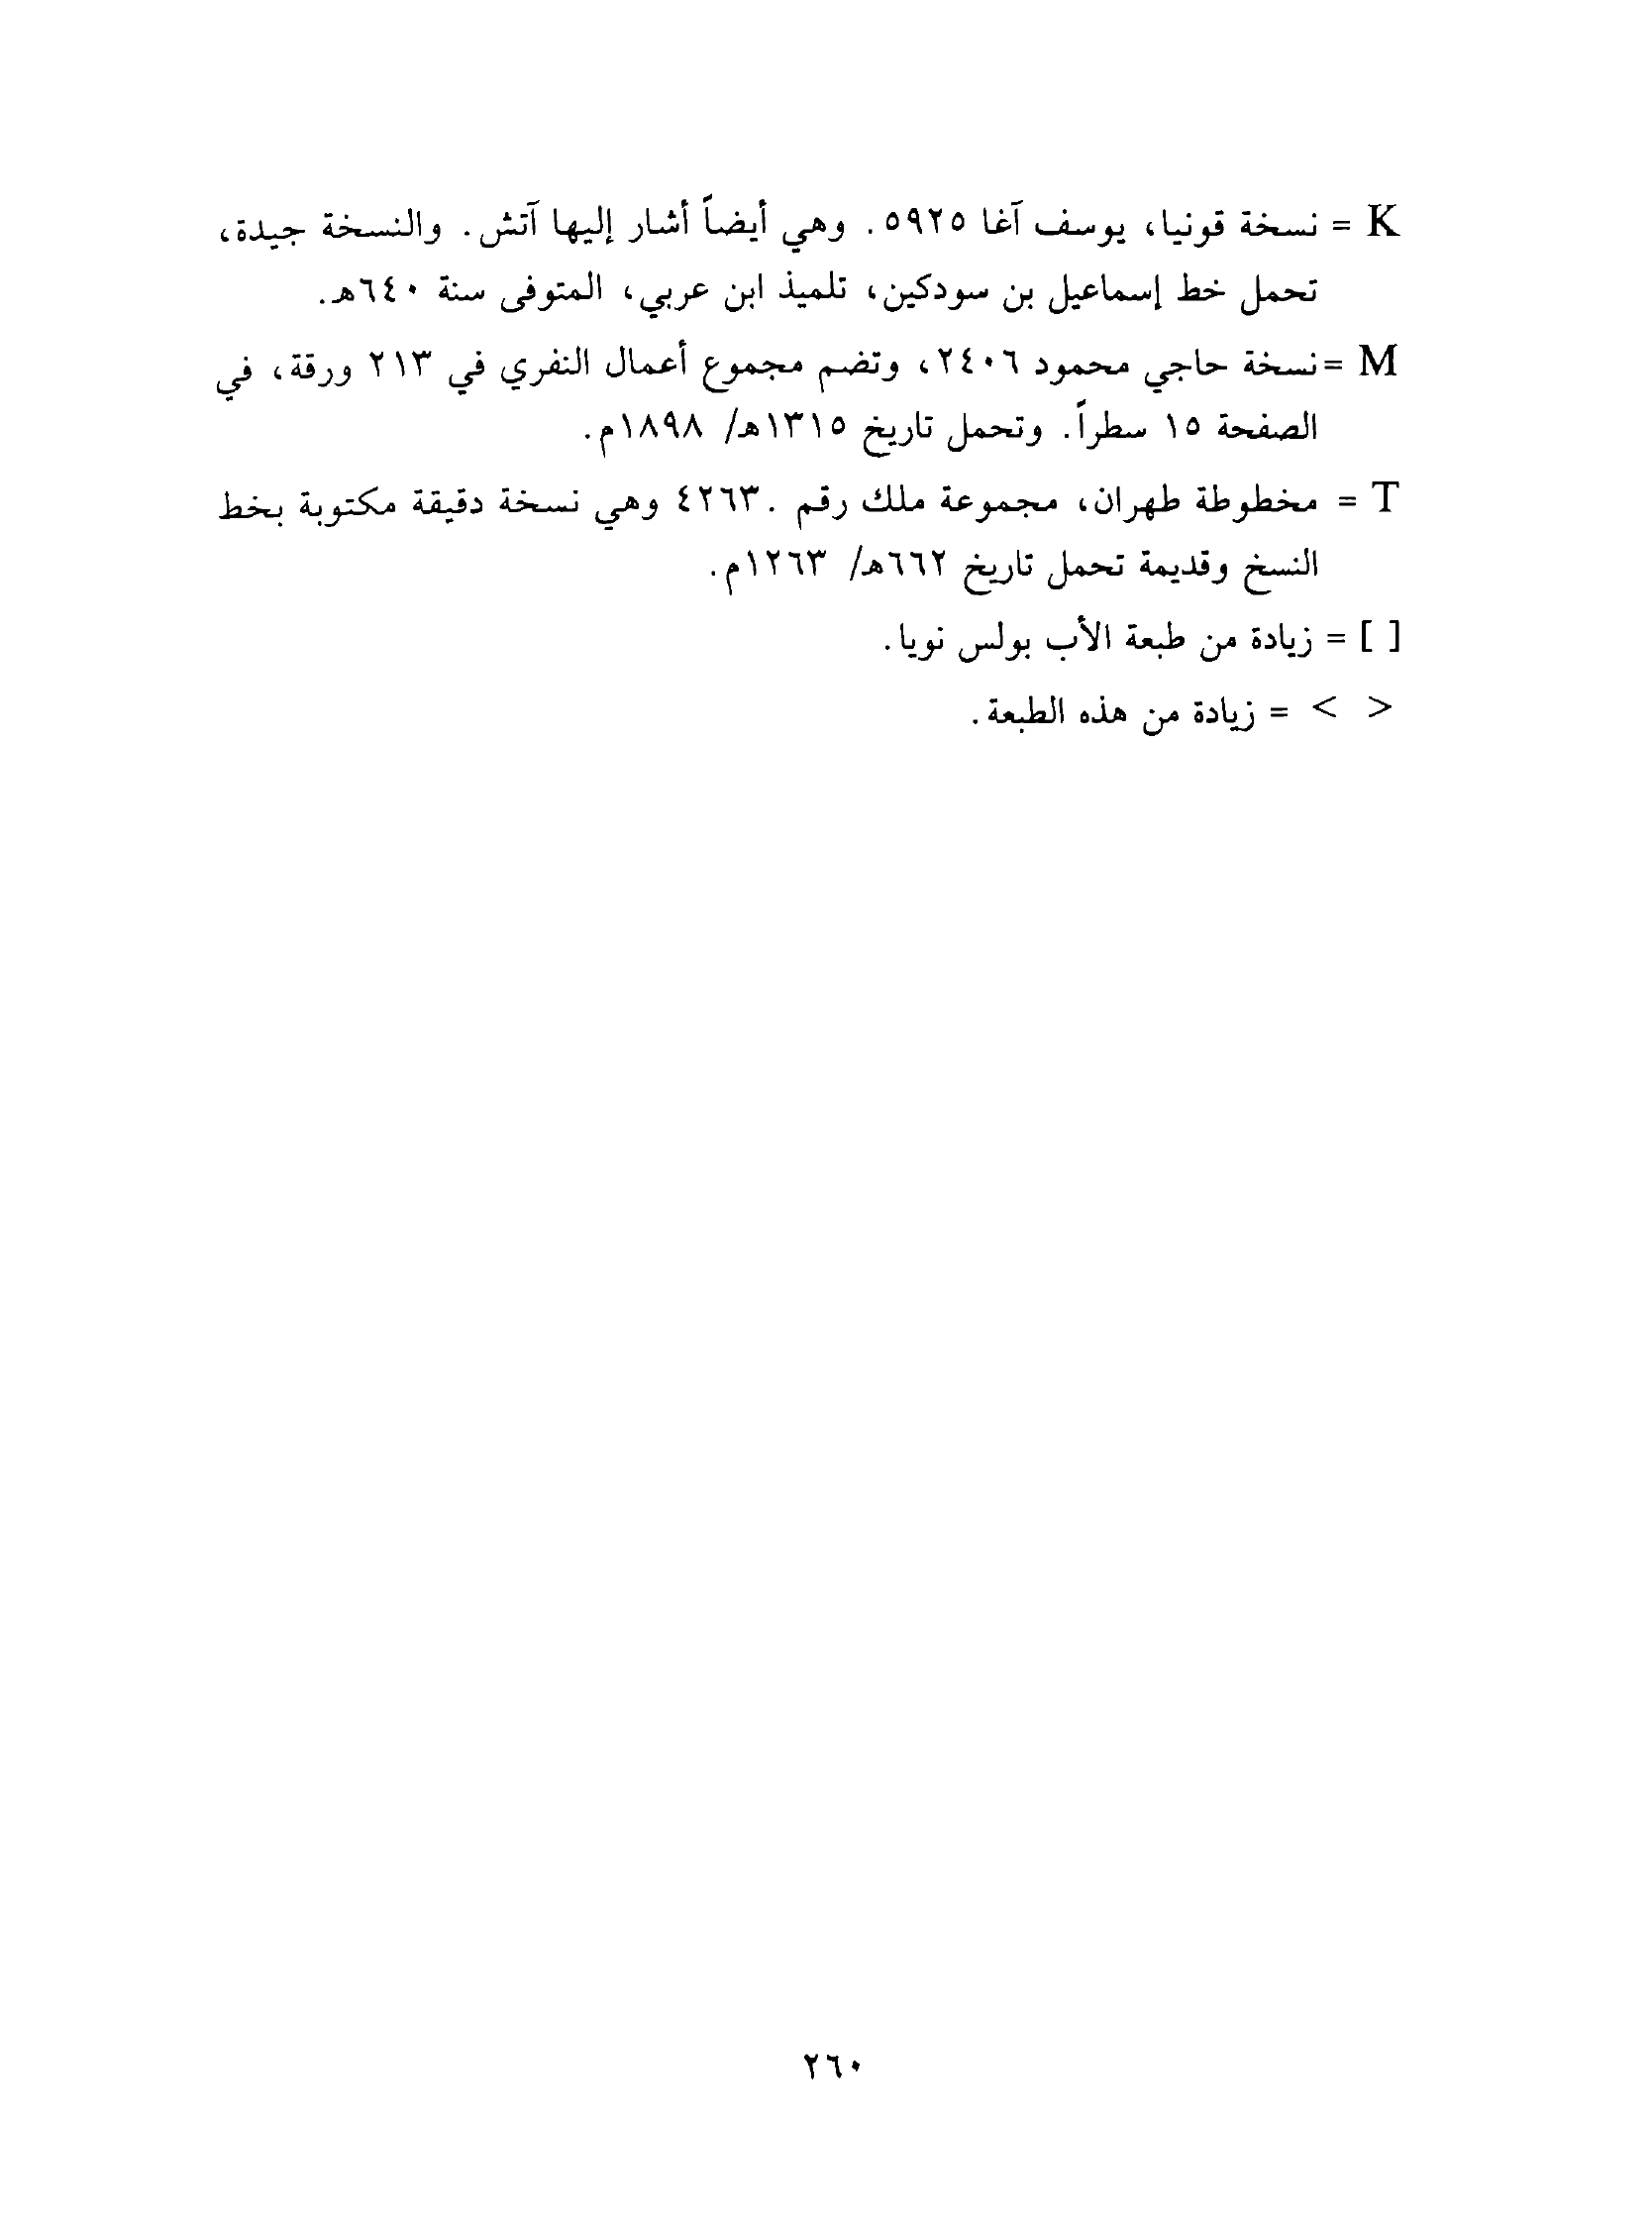 K = نسخة قونيا، يوسف آغا ٥٩٢٥. وهي أيضاً أشار إليها آتش. والنسخة جيدة،
تحمل خط إسماعيل بن سودكين، تلميذ ابن عربي، المتوفى سنة ٦٤٠هـ.
M =نسخة حاجي محمود ٢٤٠٦، وتضم مجموع أعمال النفري في ٢١٣ ورقة، في
الصفحة ١٥ سطراً. وتحمل تاريخ ١٣١٥هـ/ ١٨٩٨م.
T = مخطوطة طهران، مجموعة ملك رقم .٤٢٦٣ وهي نسخة دقيقة مكتوبة بخط
النسخ وقديمة تحمل تاريخ ٦٦٢هـ/ ١٢٦٣م.
[ ] = زيادة من طبعة الأب بولس نويا.
< > = زيادة من هذه الطبعة.
٢٦٠